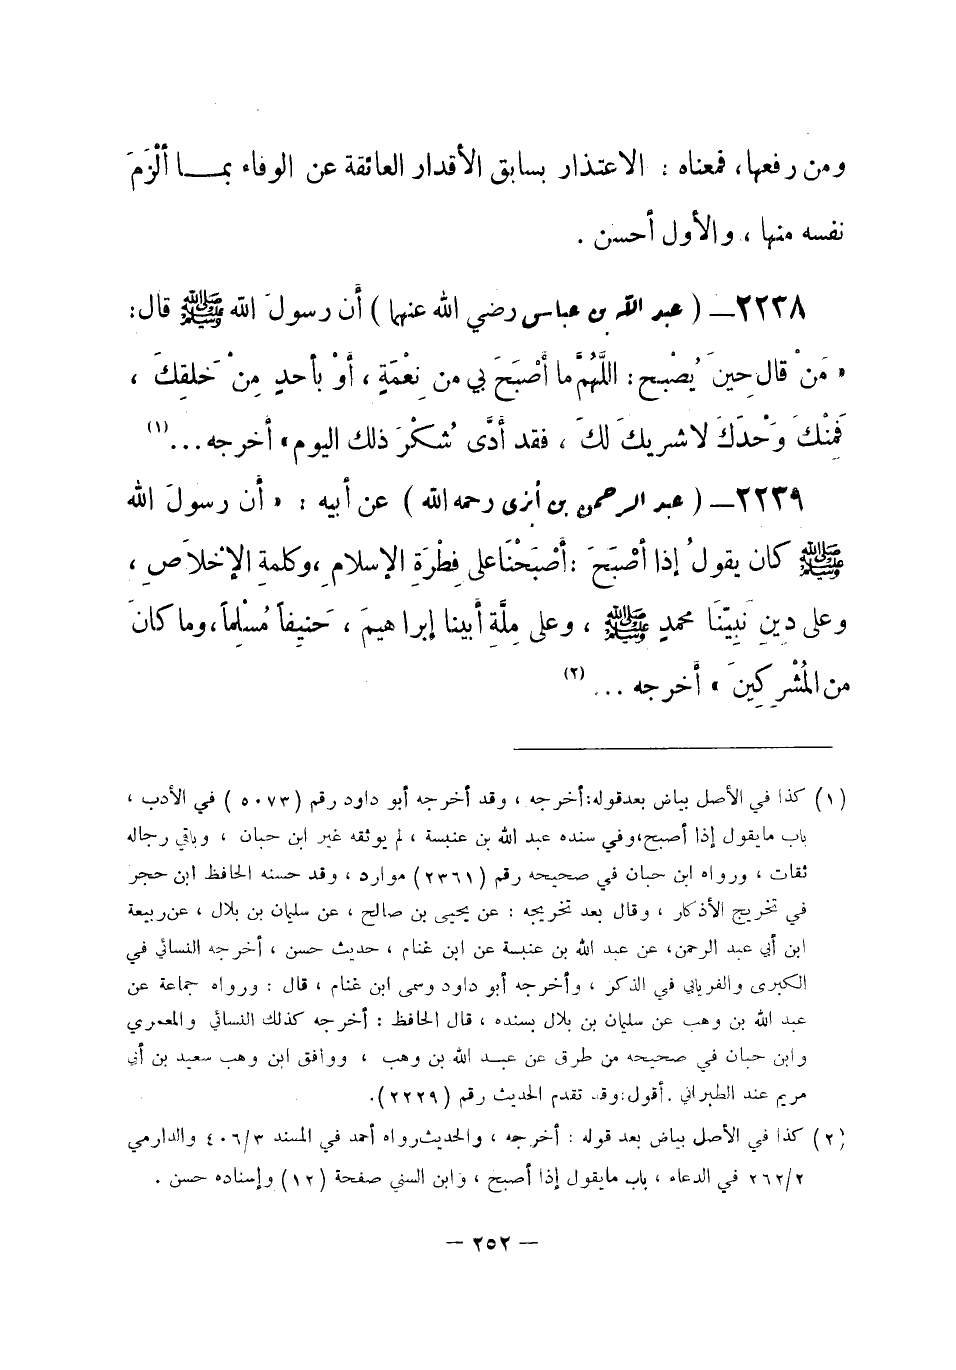 ومن رفعها، فمعناه : الاعتذار بسابق الأقدار العائقة عن الوفاء بمـــا ألْزَمَ
نفسه منها ، والأول أحسن .
٢٢٣٨ــ ( عبد الله بن عباس رضي الله عنهما ) أن رسولَ الله ﷺ قال:
« مَنْ قال حِينَ يُصْبِح : اللَّهُمَّ ما أَصْبَحَ بي من نِعْمَةٍ ، أوْ بأحدٍ مِنْ خَلقِكَ ،
فَمِنْكَ وَحْدَكَ لا شريكَ لكَ ، فقد أدَّى شُكْرَ ذلك اليوم» أخرجه ...(١)
٢٢٣٩ــ ( عبد الرحمن بن أبزى رحمه الله ) عن أبيه : « أن رسولَ الله
ﷺ كان يقولُ إذا أصْبَحَ : أصْبَحْنَا على فِطْرَةِ الإسلامِ ،وكلمةِ الإخْلاَصِ ،
وعلى دِينِ نَبِيّنَا محمدٍ ﷺ ، وعلى مِلَّةِ أبينا إبراهيمَ ، حَنيفاً مُسْلِماً،وما كانَ
من المُشْرِكِينَ » أخرجه ... (٢)
(١) كذا في الأصل بياض بعدقوله:أخرجه ، وقد أخرجه أبو داود رقم (٥٠٧٣ ) في الأدب ،
باب مايقول إذا أصبح،وفي سنده عبد الله بن عنبسة ، لم يوثقه غير ابن حبان ، وباقي رجاله
ثقات ، ورواه ابن حبان في صحيحه رقم (٢٣٦١) موارد ، وقد حسنه الحافظ ابن حجر
في تخريج الأذكار ، وقال بعد تخريجه : عن يحيى بن صالح ، عن سليمان بن بلال ، عن ربيعة
ابن أبي عبد الرحمن، عن عبد الله بن عنبسة عن ابن غنام ، حديث حسن ، أخرجه النسائي في
الكبرى والفريابي في الذكر ، وأخرجه أبو داود وسمى ابن غنام ، قال : ورواه جماعة عن
عبد الله بن وهب عن سليمان بن بلال بسنده ، قال الحافظ : أخرجه كذلك النسائي والمعمري
وابن حبان في صحيحه من طرق عن عبـد الله بن وهب ، ووافق ابن وهب سعيد بن أبي
مريم عند الطبراني . أقول:وقد تقدم الحديث رقم (٢٢٢٩).
(٢) كذا في الأصل بياض بعد قوله : أخرجه ، والحديث رواه أحمد في المسند ٤٠٦/٣ والدارمي
٢٦٢/٢ في الدعاء ، باب مايقول إذا أصبح ، وابن السني صفحة (١٢) وإسناده حسن .
— ٢٥٢ —